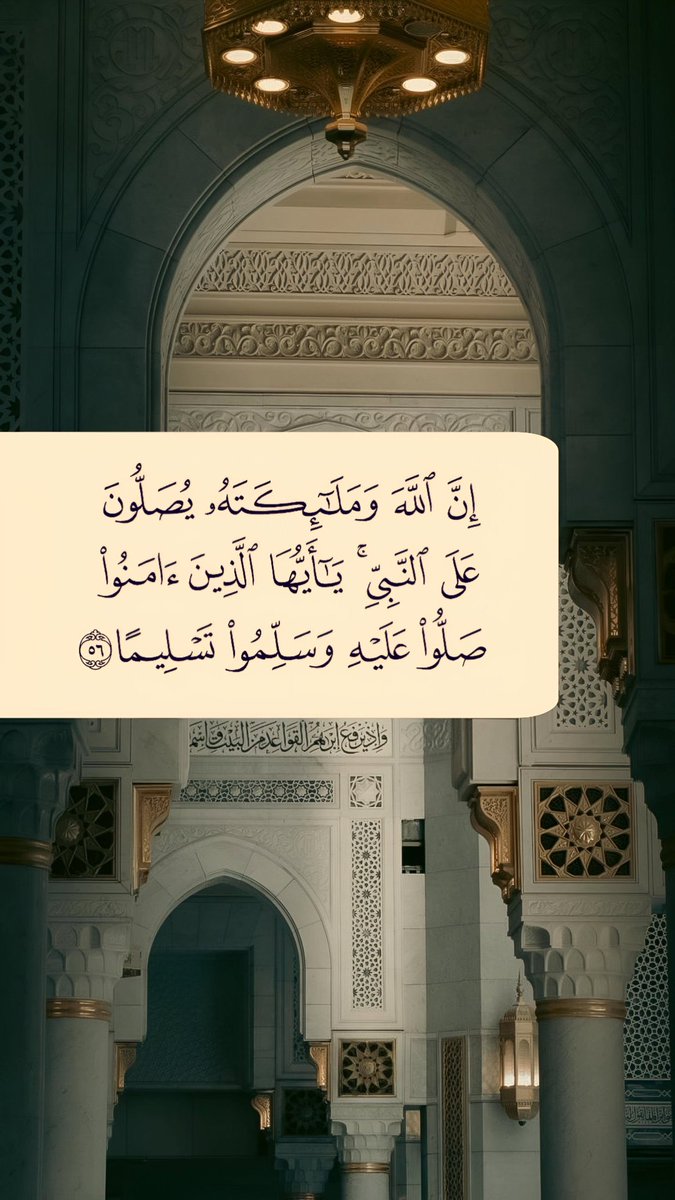 إِنَّ ٱللَّهَ وَمَلَـٰٓئِكَتَهُۥ يُصَلُّونَ
عَلَى ٱلنَّبِىِّ ۚ يَـٰٓأَيُّهَا ٱلَّذِينَ ءَامَنُوا۟
صَلُّوا۟ عَلَيْهِ وَسَلِّمُوا۟ تَسْلِيمًا ٥٦
وإذ يرفع إبراهيم القواعد من البيت وإسم